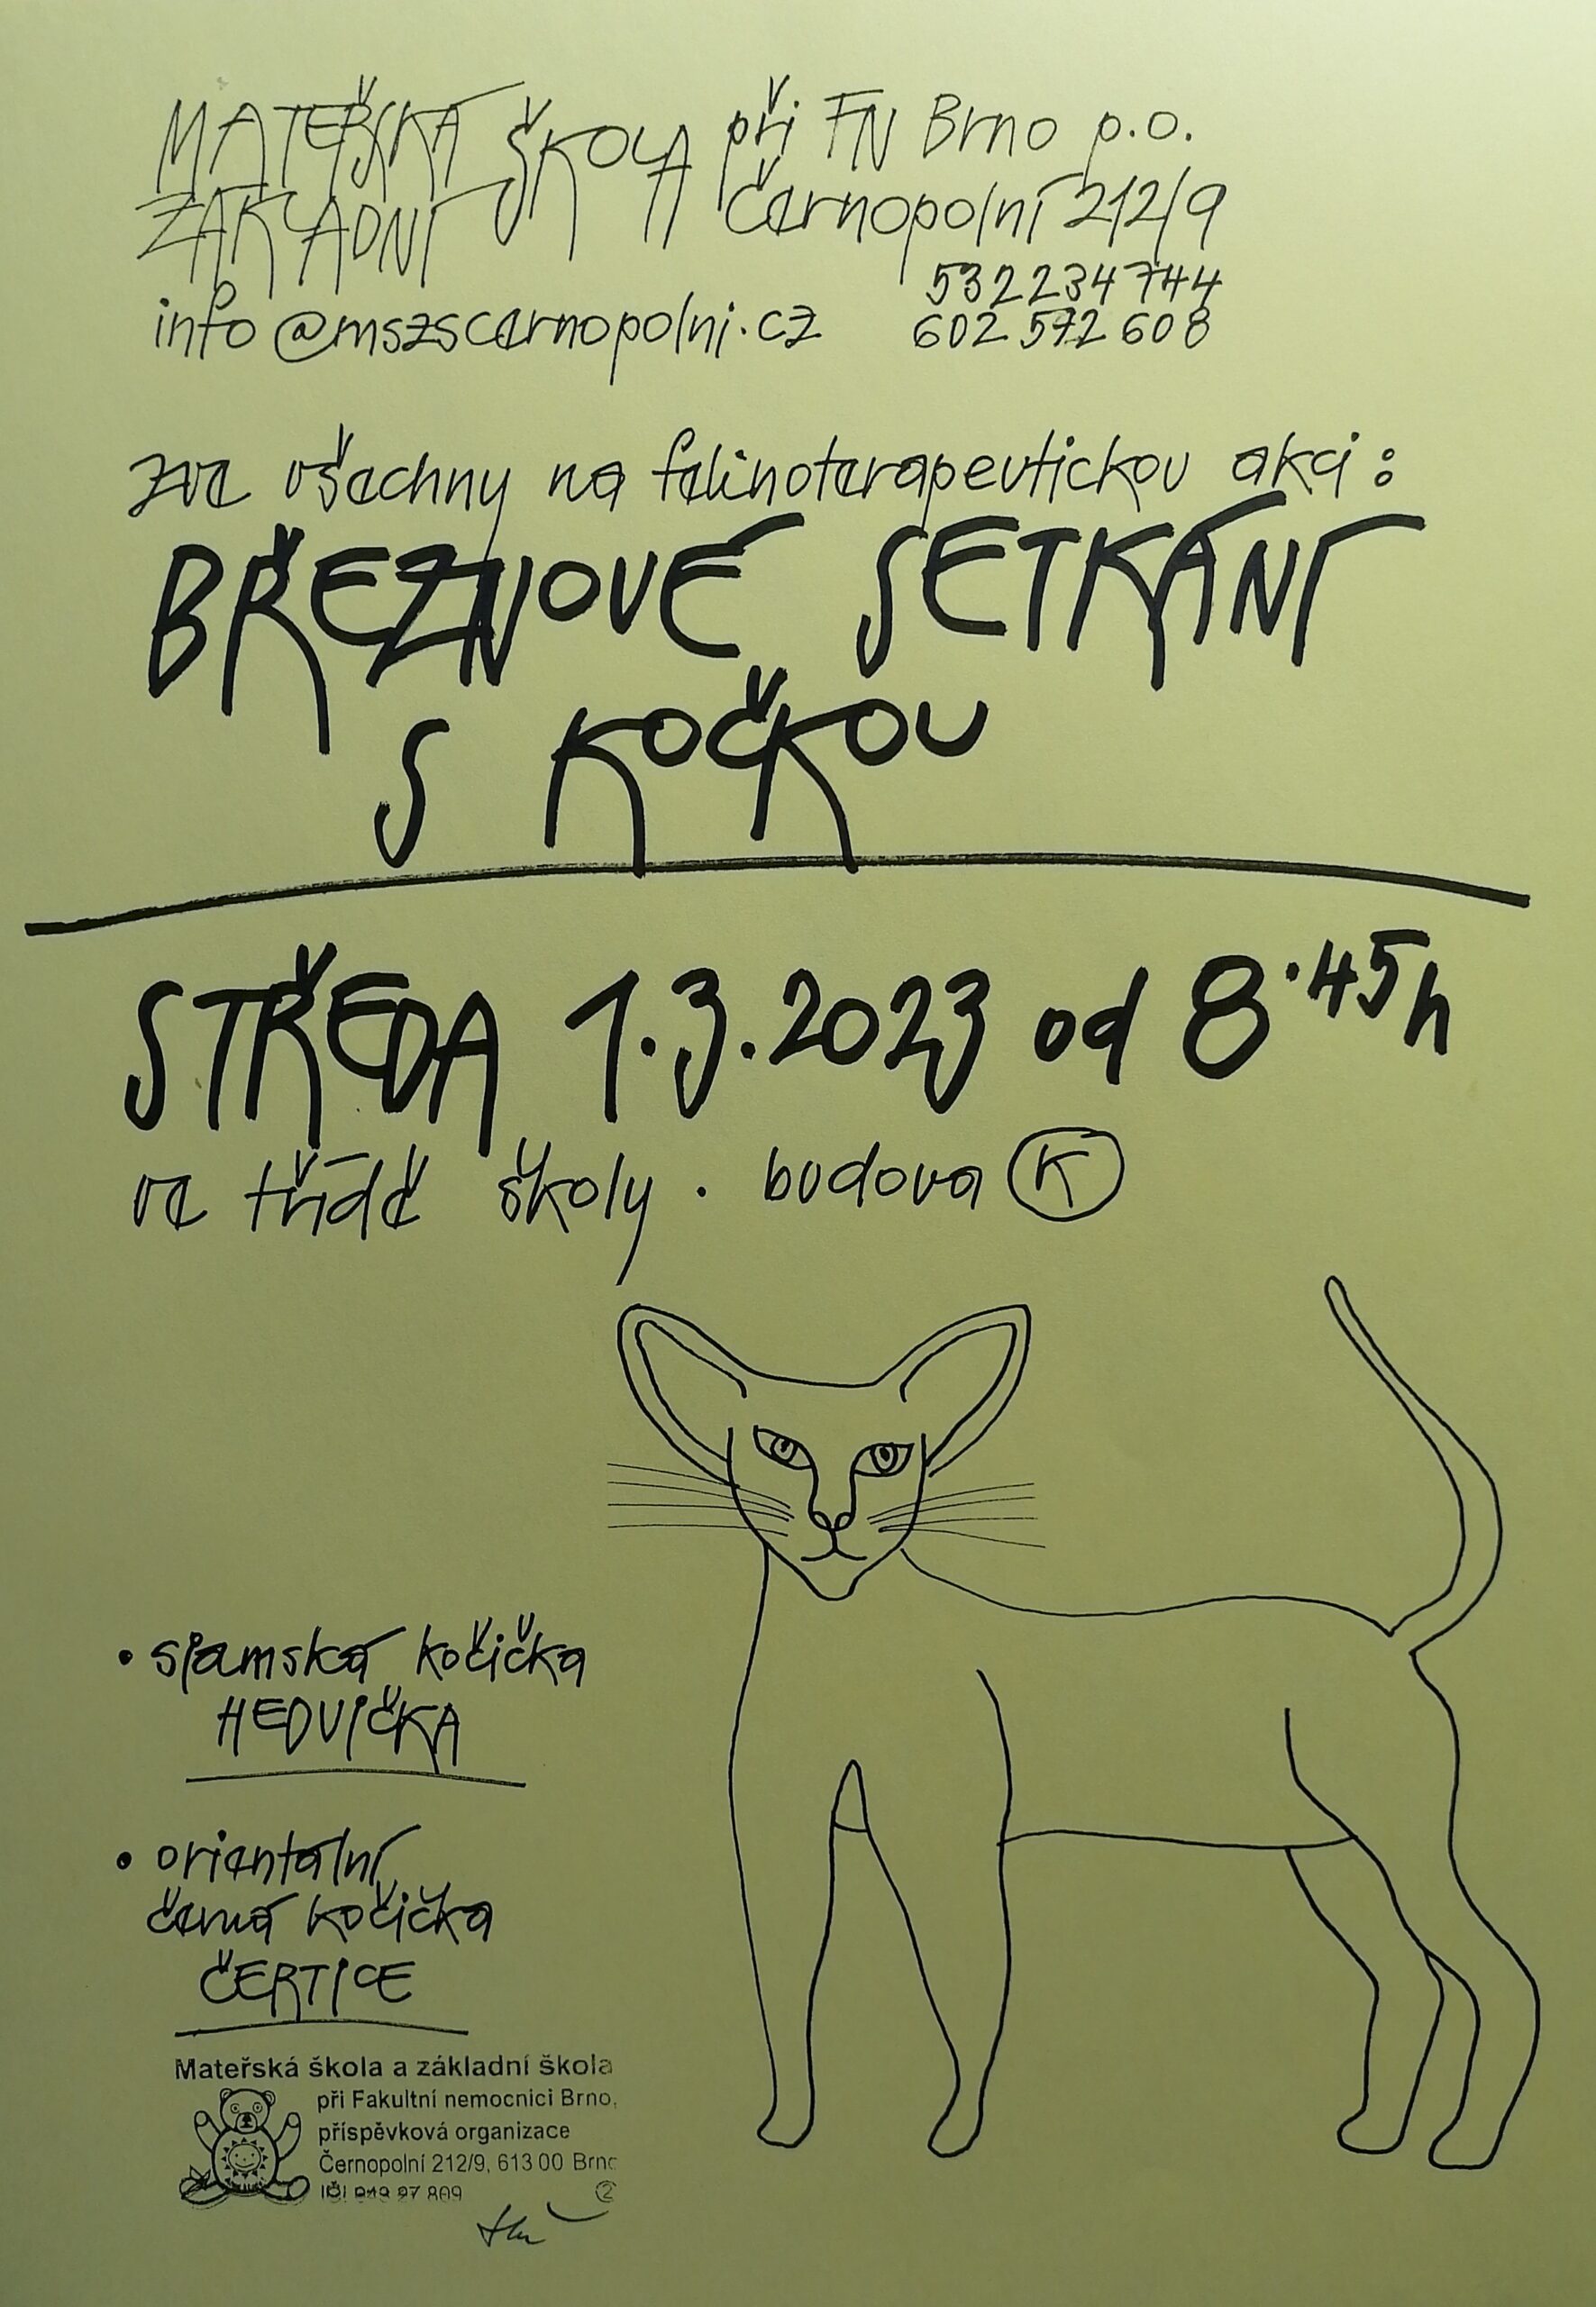 MATEŘSKÁ ŠKOLA při FN Brno p.o.
ZÁKLADNÍ Černopolní 212/9
532234744
info@mszscernopolni.cz 602 572 608
zve všechny na felinoterapeutickou akci:
BŘEZNOVÉ SETKÁNÍ
S KOČKOU
STŘEDA 1.3.2023 od 8.45h
ve třídě školy . budova K
• siamská kočička
HEDVIČKA
• orientální
černá kočička
ČERTICE
Mateřská škola a základní škola
při Fakultní nemocnici Brno,
příspěvková organizace
Černopolní 212/9, 613 00 Brno
2